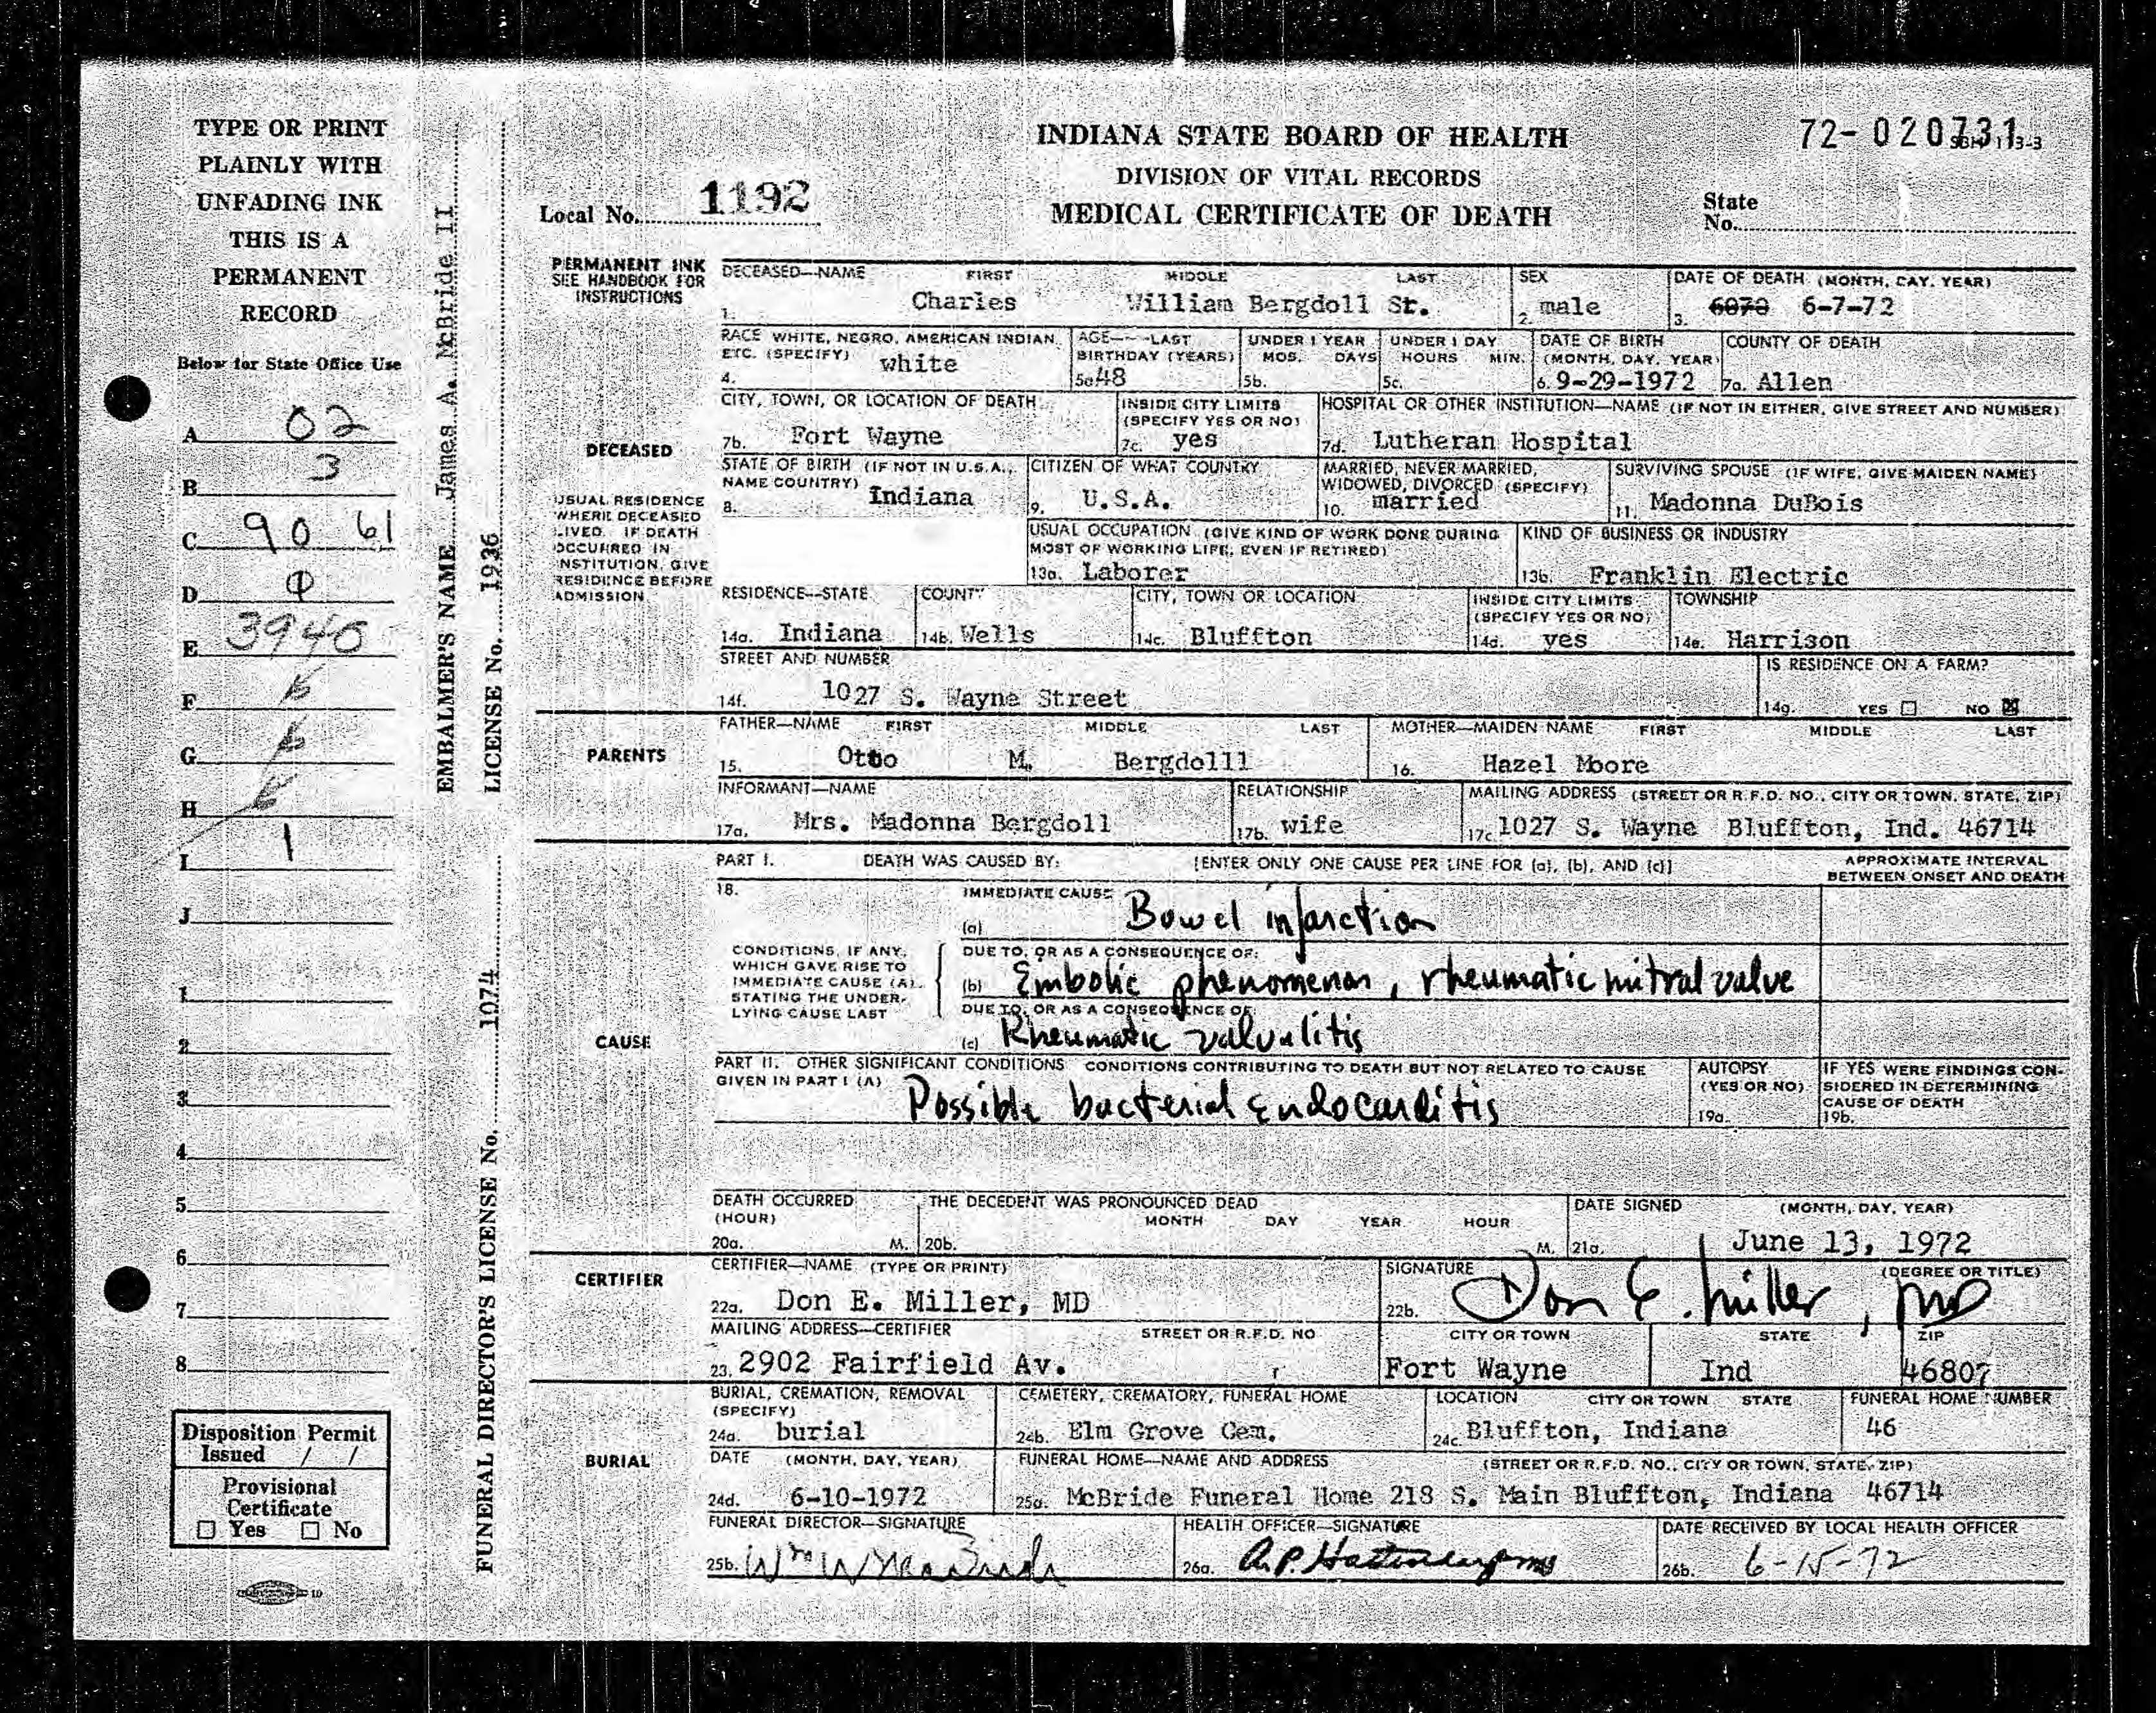 TYPE OR PRINT
PLAINLY WITH
UNFADING INK
THIS IS A
PERMANENT
RECORD
Below for State Office Use
A 02
B 3
C 90 61
D
E 3940
F
G
H
I 1
J
1
2
3
4
5
6
7
8
Disposition Permit
Issued / /
Provisional
Certificate
☐ Yes ☐ No
EMBALMER'S NAME James A. McBride II
LICENSE No. 1936
FUNERAL DIRECTOR'S LICENSE No. 1074
INDIANA STATE BOARD OF HEALTH
DIVISION OF VITAL RECORDS
MEDICAL CERTIFICATE OF DEATH
72-020731
Local No. 1192
State
No.
PERMANENT INK
SEE HANDBOOK FOR
INSTRUCTIONS
DECEASED—NAME FIRST MIDDLE LAST
1. Charles William Bergdoll Sr.
SEX
2. male
DATE OF DEATH (MONTH, DAY, YEAR)
3. 6-7-72
RACE WHITE, NEGRO, AMERICAN INDIAN,
ETC. (SPECIFY)
4. white
AGE—LAST
BIRTHDAY (YEARS)
5a 48
UNDER 1 YEAR
MOS. DAYS
5b.
UNDER 1 DAY
HOURS MIN.
5c.
DATE OF BIRTH
(MONTH, DAY, YEAR)
6. 9-29-1972
COUNTY OF DEATH
7a. Allen
DECEASED
CITY, TOWN, OR LOCATION OF DEATH
7b. Fort Wayne
INSIDE CITY LIMITS
(SPECIFY YES OR NO)
7c. yes
HOSPITAL OR OTHER INSTITUTION—NAME (IF NOT IN EITHER, GIVE STREET AND NUMBER)
7d. Lutheran Hospital
USUAL RESIDENCE
WHERE DECEASED
LIVED. IF DEATH
OCCURRED IN
INSTITUTION, GIVE
RESIDENCE BEFORE
ADMISSION
STATE OF BIRTH (IF NOT IN U.S.A.,
NAME COUNTRY)
8. Indiana
CITIZEN OF WHAT COUNTRY
9. U.S.A.
MARRIED, NEVER MARRIED,
WIDOWED, DIVORCED (SPECIFY)
10. married
SURVIVING SPOUSE (IF WIFE, GIVE MAIDEN NAME)
11. Madonna DuBois
USUAL OCCUPATION (GIVE KIND OF WORK DONE DURING
MOST OF WORKING LIFE, EVEN IF RETIRED)
13a. Laborer
KIND OF BUSINESS OR INDUSTRY
13b. Franklin Electric
RESIDENCE—STATE
14a. Indiana
COUNTY
14b. Wells
CITY, TOWN OR LOCATION
14c. Bluffton
INSIDE CITY LIMITS
(SPECIFY YES OR NO)
14d. yes
TOWNSHIP
14e. Harrison
STREET AND NUMBER
14f. 1027 S. Wayne Street
IS RESIDENCE ON A FARM?
14g. YES ☐ NO ☒
PARENTS
FATHER—NAME FIRST MIDDLE LAST
15. Otto M. Bergdolll
MOTHER—MAIDEN NAME FIRST MIDDLE LAST
16. Hazel Moore
INFORMANT—NAME
17a. Mrs. Madonna Bergdoll
RELATIONSHIP
17b. wife
MAILING ADDRESS (STREET OR R.F.D. NO., CITY OR TOWN, STATE, ZIP)
17c 1027 S. Wayne Bluffton, Ind. 46714
CAUSE
PART I. DEATH WAS CAUSED BY: [ENTER ONLY ONE CAUSE PER LINE FOR (a), (b), AND (c)]
APPROXIMATE INTERVAL
BETWEEN ONSET AND DEATH
18.
IMMEDIATE CAUSE
(a) Bowel infarction
CONDITIONS, IF ANY,
WHICH GAVE RISE TO
IMMEDIATE CAUSE (A),
STATING THE UNDER-
LYING CAUSE LAST
DUE TO, OR AS A CONSEQUENCE OF:
(b) Embolic phenomenon, rheumatic mitral valve
DUE TO, OR AS A CONSEQUENCE OF
(c) Rheumatic valvulitis
PART II. OTHER SIGNIFICANT CONDITIONS CONDITIONS CONTRIBUTING TO DEATH BUT NOT RELATED TO CAUSE
GIVEN IN PART I (A)
Possible bacterial endocarditis
AUTOPSY
(YES OR NO)
19a.
IF YES WERE FINDINGS CON-
SIDERED IN DETERMINING
CAUSE OF DEATH
19b.
DEATH OCCURRED
(HOUR)
20a. M.
THE DECEDENT WAS PRONOUNCED DEAD
MONTH DAY YEAR HOUR
20b. M.
DATE SIGNED (MONTH, DAY, YEAR)
21a. June 13, 1972
CERTIFIER
CERTIFIER—NAME (TYPE OR PRINT)
22a. Don E. Miller, MD
SIGNATURE (DEGREE OR TITLE)
22b. Don E. Miller, MD
MAILING ADDRESS—CERTIFIER STREET OR R.F.D. NO CITY OR TOWN STATE ZIP
23. 2902 Fairfield Av. Fort Wayne Ind 46807
BURIAL
BURIAL, CREMATION, REMOVAL
(SPECIFY)
24a. burial
CEMETERY, CREMATORY, FUNERAL HOME
24b. Elm Grove Cem.
LOCATION CITY OR TOWN STATE
24c. Bluffton, Indiana
FUNERAL HOME NUMBER
46
DATE (MONTH, DAY, YEAR)
24d. 6-10-1972
FUNERAL HOME—NAME AND ADDRESS (STREET OR R.F.D. NO., CITY OR TOWN, STATE, ZIP)
25a. McBride Funeral Home 218 S. Main Bluffton, Indiana 46714
FUNERAL DIRECTOR—SIGNATURE
25b. Wm W McBride
HEALTH OFFICER—SIGNATURE
26a. A.P.
DATE RECEIVED BY LOCAL HEALTH OFFICER
26b. 6-15-72